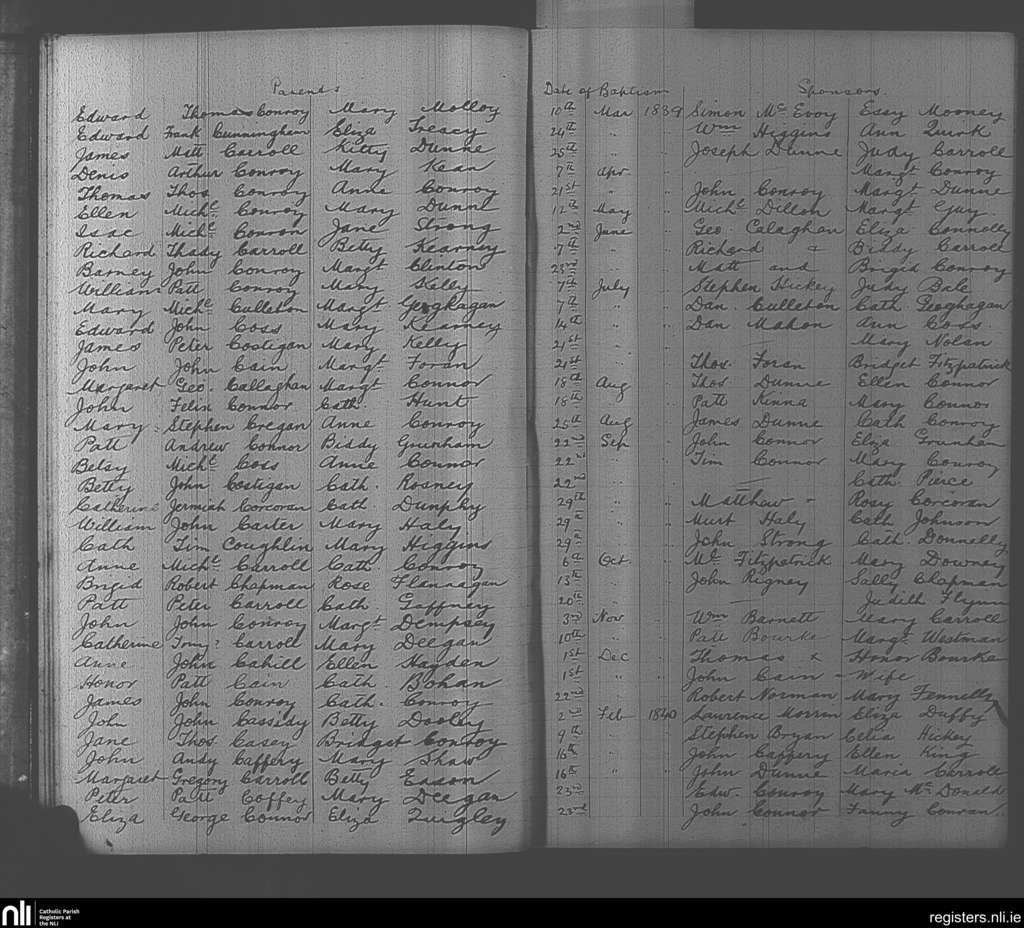 Parents Date of Baptism Sponsors.
Edward Thomas Conroy Mary Molloy 10th Mar 1839 Simon McEvoy Essy Mooney
Edward Frank Cunningham Eliza Treacy 24th " " Wm Higgins Ann Quirk
James Matt Carroll Kitty Dunne 25th " " Joseph Dunne Judy Carroll
Denis Arthur Conroy Mary Kean 7th Apr " Margt Conroy
Thomas Thos Conroy Anne Conroy 21st " " John Conroy Margt Dunne
Ellen Michl Conroy Mary Dunne 12th May " Michl Dillon Margt Guy
Isac Michl Conron Jane Strong 2nd June " Geo. Calaghan Eliza Connelly
Richard Thady Carroll Betty Kearney 7th " " Richard & Biddy Carroll
Barney John Conroy Margt Clinton 23rd " " Matt and Brigid Conroy
William Patt Conroy Mary Kelly 7th July " Stephen Hickey Judy Bale
Mary Michl Culleton Margt Geoghagan 7th " " Dan. Culleton Cath Geoghagan
Edward John Coss Mary Kearney 14th " " Dan Mahon Ann Coss
James Peter Costigan Mary Kelly 21st " " — Mary Nolan
John John Cain Margt Foran 21st " " Thos. Foran Bridget Fitzpatrick
Margaret Geo. Callaghan Margt Connor 18th Aug " Thos. Dunne Ellen Connor
John Felix Connor Cath. Hunt 18th " " Patt Kinna Mary Connor
Mary Stephen Cregan Anne Conroy 25th Aug " James Dunne Cath Conroy
Patt Andrew Connor Biddy Grunham 22nd Sep " John Connor Eliza Grunham
Betsy Michl Coss Anne Connor 22nd " " Tim Connor Mary Conroy
Betty John Costigan Cath. Rosney 22nd " " — Cath Pierce
Catherine Jermiah Corcoran Cath Dunphy 29th " " Matthew " Rosy Corcoran
William John Carter Mary Haly 29th " " Murt Haly Cath Johnson
Cath Tim Coughlin Mary Higgins 29th " " John Strong Cath. Donnelly
Anne Michl Carroll Cath. Conroy 6th Oct. " Ml Fitzpatrick Mary Downey
Brigid Robert Chapman Rose Flannagan 13th " " John Rigney Sally Chapman
Patt Peter Carroll Cath. Gaffney 20th " " — Judith Flynn
John John Conroy Margt Dempsey 3rd Nov " Wm Barnett Mary Carroll
Catherine Tomy? Carroll Mary Deegan 10th " " Patt Bourke Margt Westman
Anne John Cahill Ellen Hayden 1st Dec " Thomas & Honor Bourke
Honor Patt Cain Cath. Bohan 1st " " John Cain - Wife
James John Conroy Cath. Conroy 22nd " " Robert Norman Mary Fennelly
John John Cassidy Betty Dooley 2nd Feb 1840 Lawrence Morrin Eliza Duffy
Jane Thos. Casey Bridget Conroy 9th " Stephen Bryan Celia Hickey
John Andy Caffery Mary Shaw 16th " John Caffery Ellen King
Margaret Gregory Carroll Betty Eason 16th " John Dunne Maria Carroll
Peter Patt Coffey Mary Deegan 23rd Edw. Conroy Mary McDonald
Eliza George Connor Eliza Quigley 23rd John Connor Fanny Conran.
nli Catholic Parish
Registers at
the NLI
registers.nli.ie